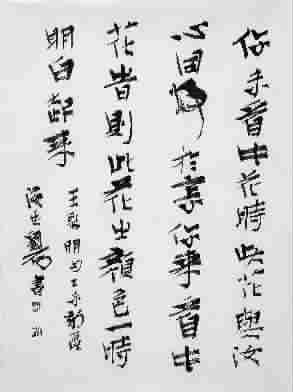 你未看中花時此花與汝
心同歸於寂你來看中
花旹則此花之顏色一時
明白起來
王陽明句
書